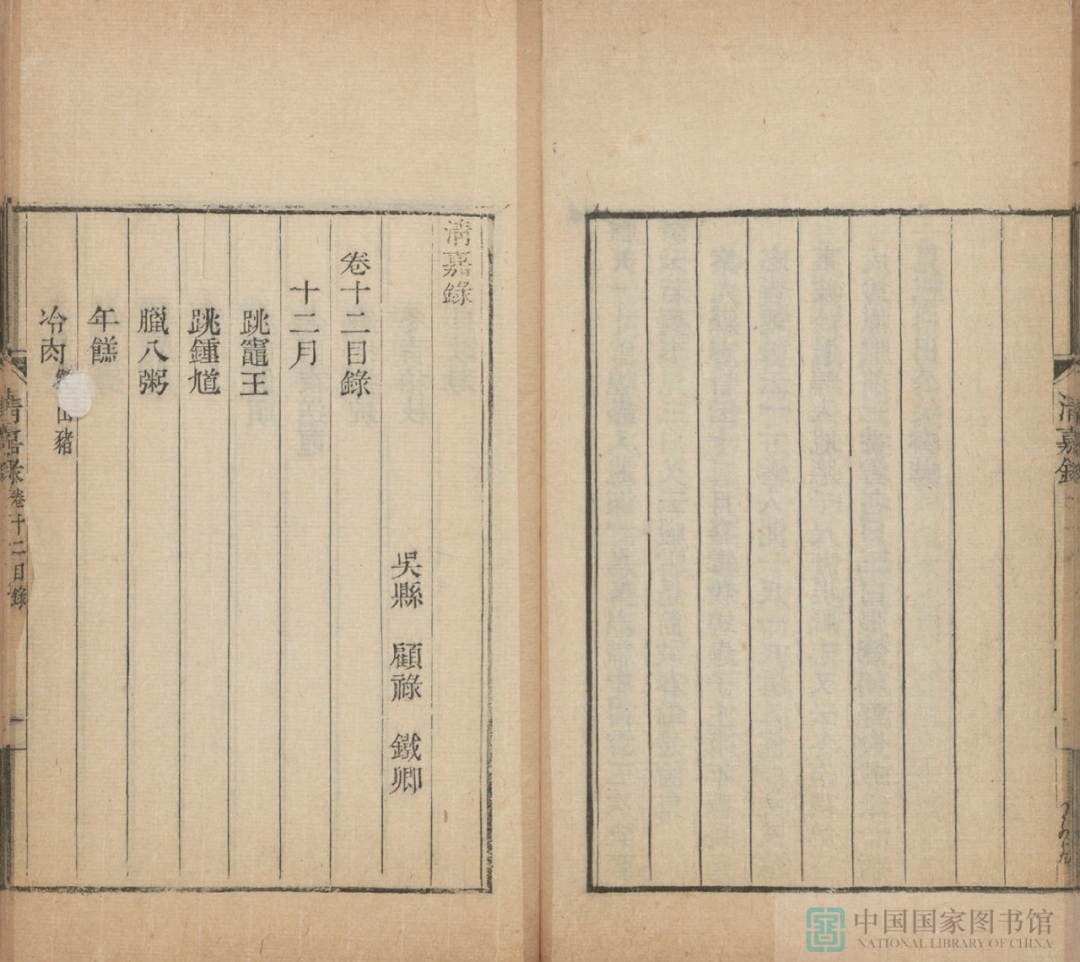 清嘉錄
清嘉錄
吳縣 顧祿 鐵卿
卷十二目錄
十二月
跳竈王
跳鍾馗
臘八粥
年餻
冷肉 山豬
清嘉錄 卷十二目錄 一
中国国家图书馆
NATIONAL LIBRARY OF CHINA